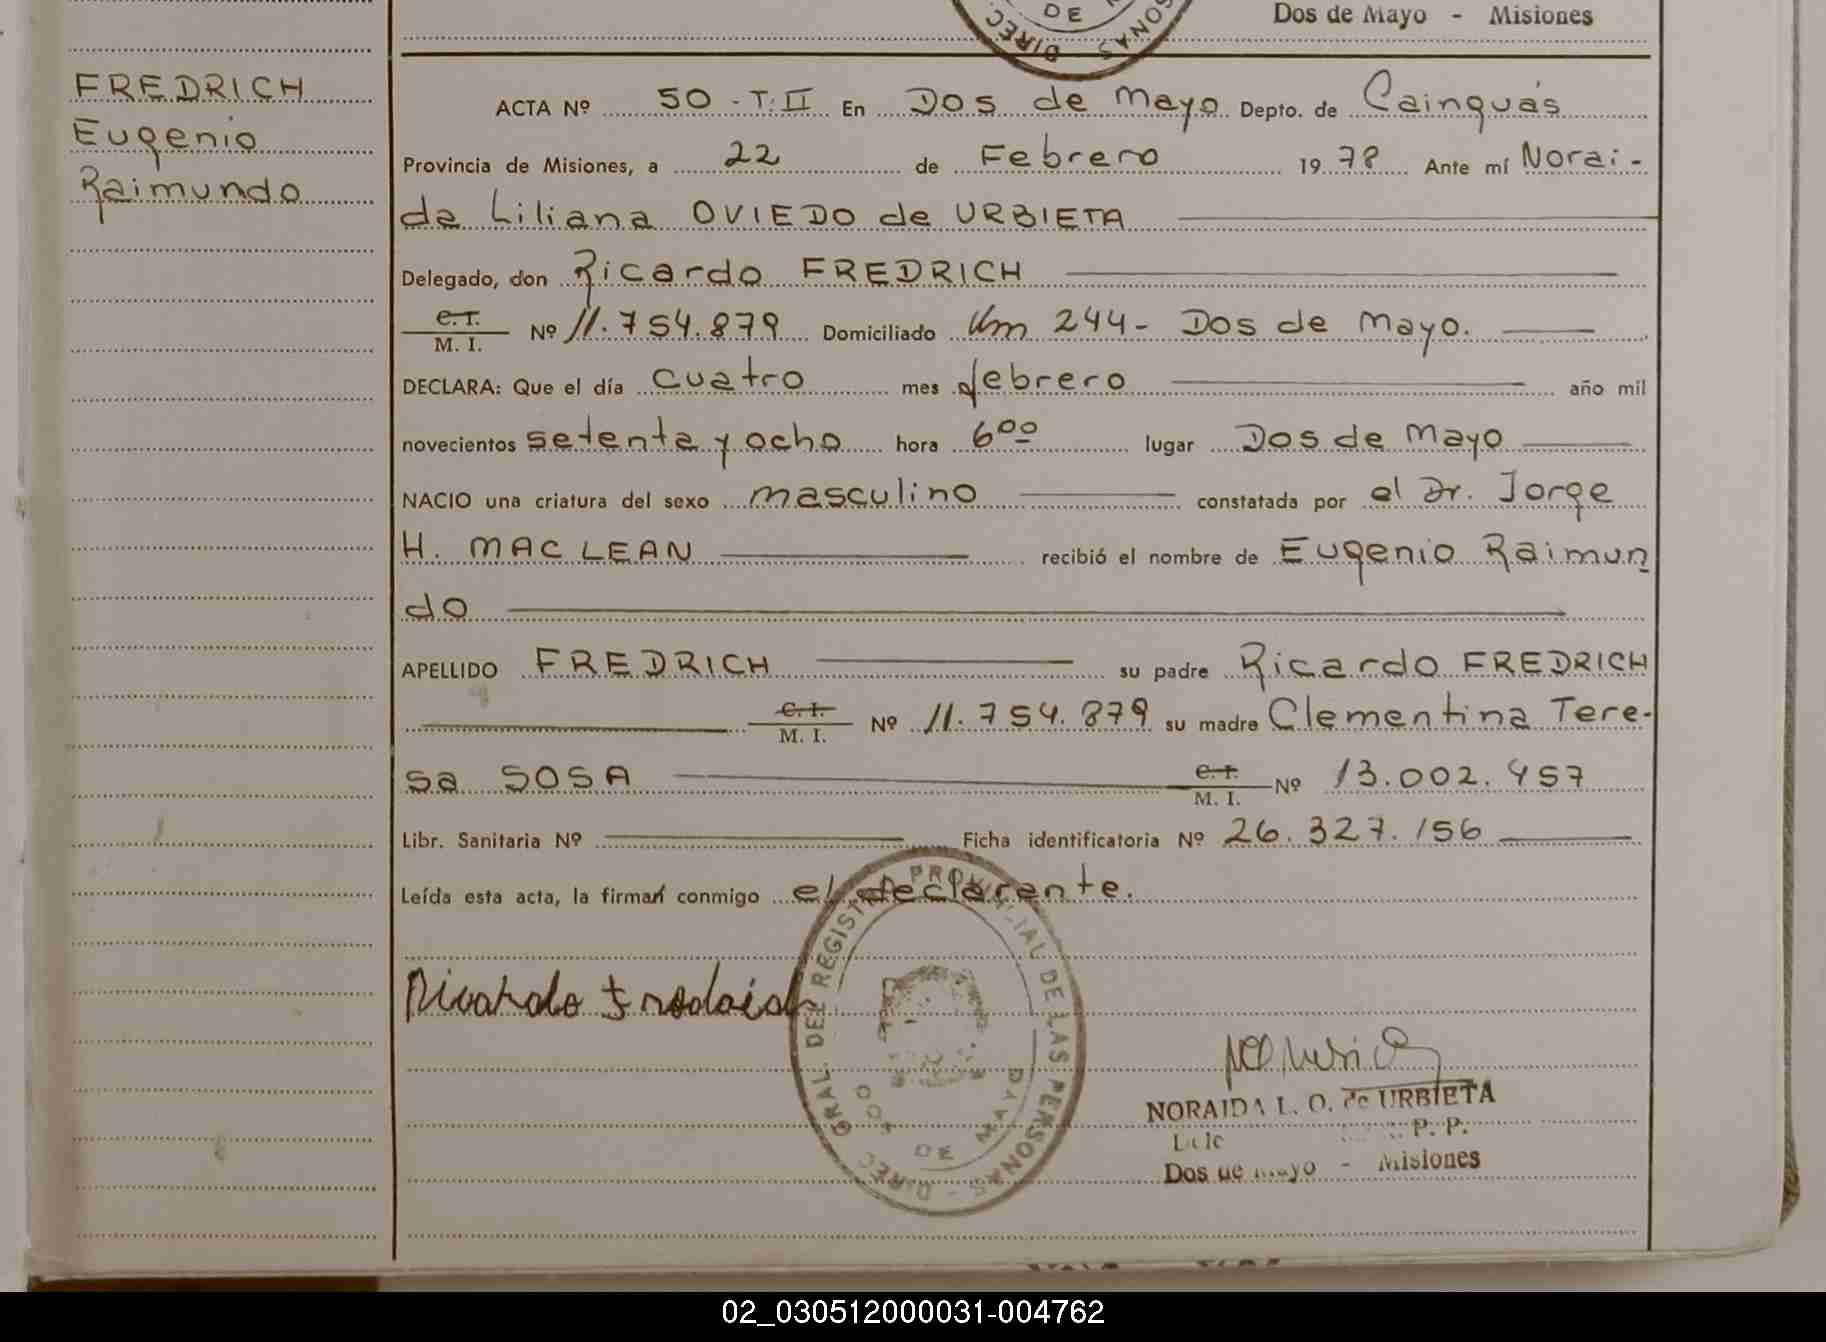 Dos de Mayo - Misiones
FREDRICH
Eugenio
Raimundo
ACTA Nº 50 - T. II En Dos de Mayo Depto. de Cainguás
Provincia de Misiones, a 22 de Febrero 1978 Ante mí Norai-
da Liliana OVIEDO de URBIETA
Delegado, don Ricardo FREDRICH
C.I.
M. I. Nº 11.754.879 Domiciliado Km 244- Dos de Mayo.
DECLARA: Que el día cuatro mes febrero año mil
novecientos setenta y ocho hora 6⁰⁰ lugar Dos de Mayo
NACIO una criatura del sexo masculino constatada por el Dr. Jorge
H. MAC LEAN recibió el nombre de Eugenio Raimun
do
APELLIDO FREDRICH su padre Ricardo FREDRICH
C.I.
M. I. Nº 11.754.879 su madre Clementina Tere-
sa SOSA C.I. M. I. Nº 13.002.457
Libr. Sanitaria Nº Ficha identificatoria Nº 26.327.156
Leída esta acta, la firman conmigo el declarante.
DIREC. GRAL. DEL REGISTRO PROVINCIAL DE LAS PERSONAS
DOS DE MAYO
NORAIDA L. O. de URBIETA
P. P.
Dos de Mayo - Misiones
02_030512000031-004762